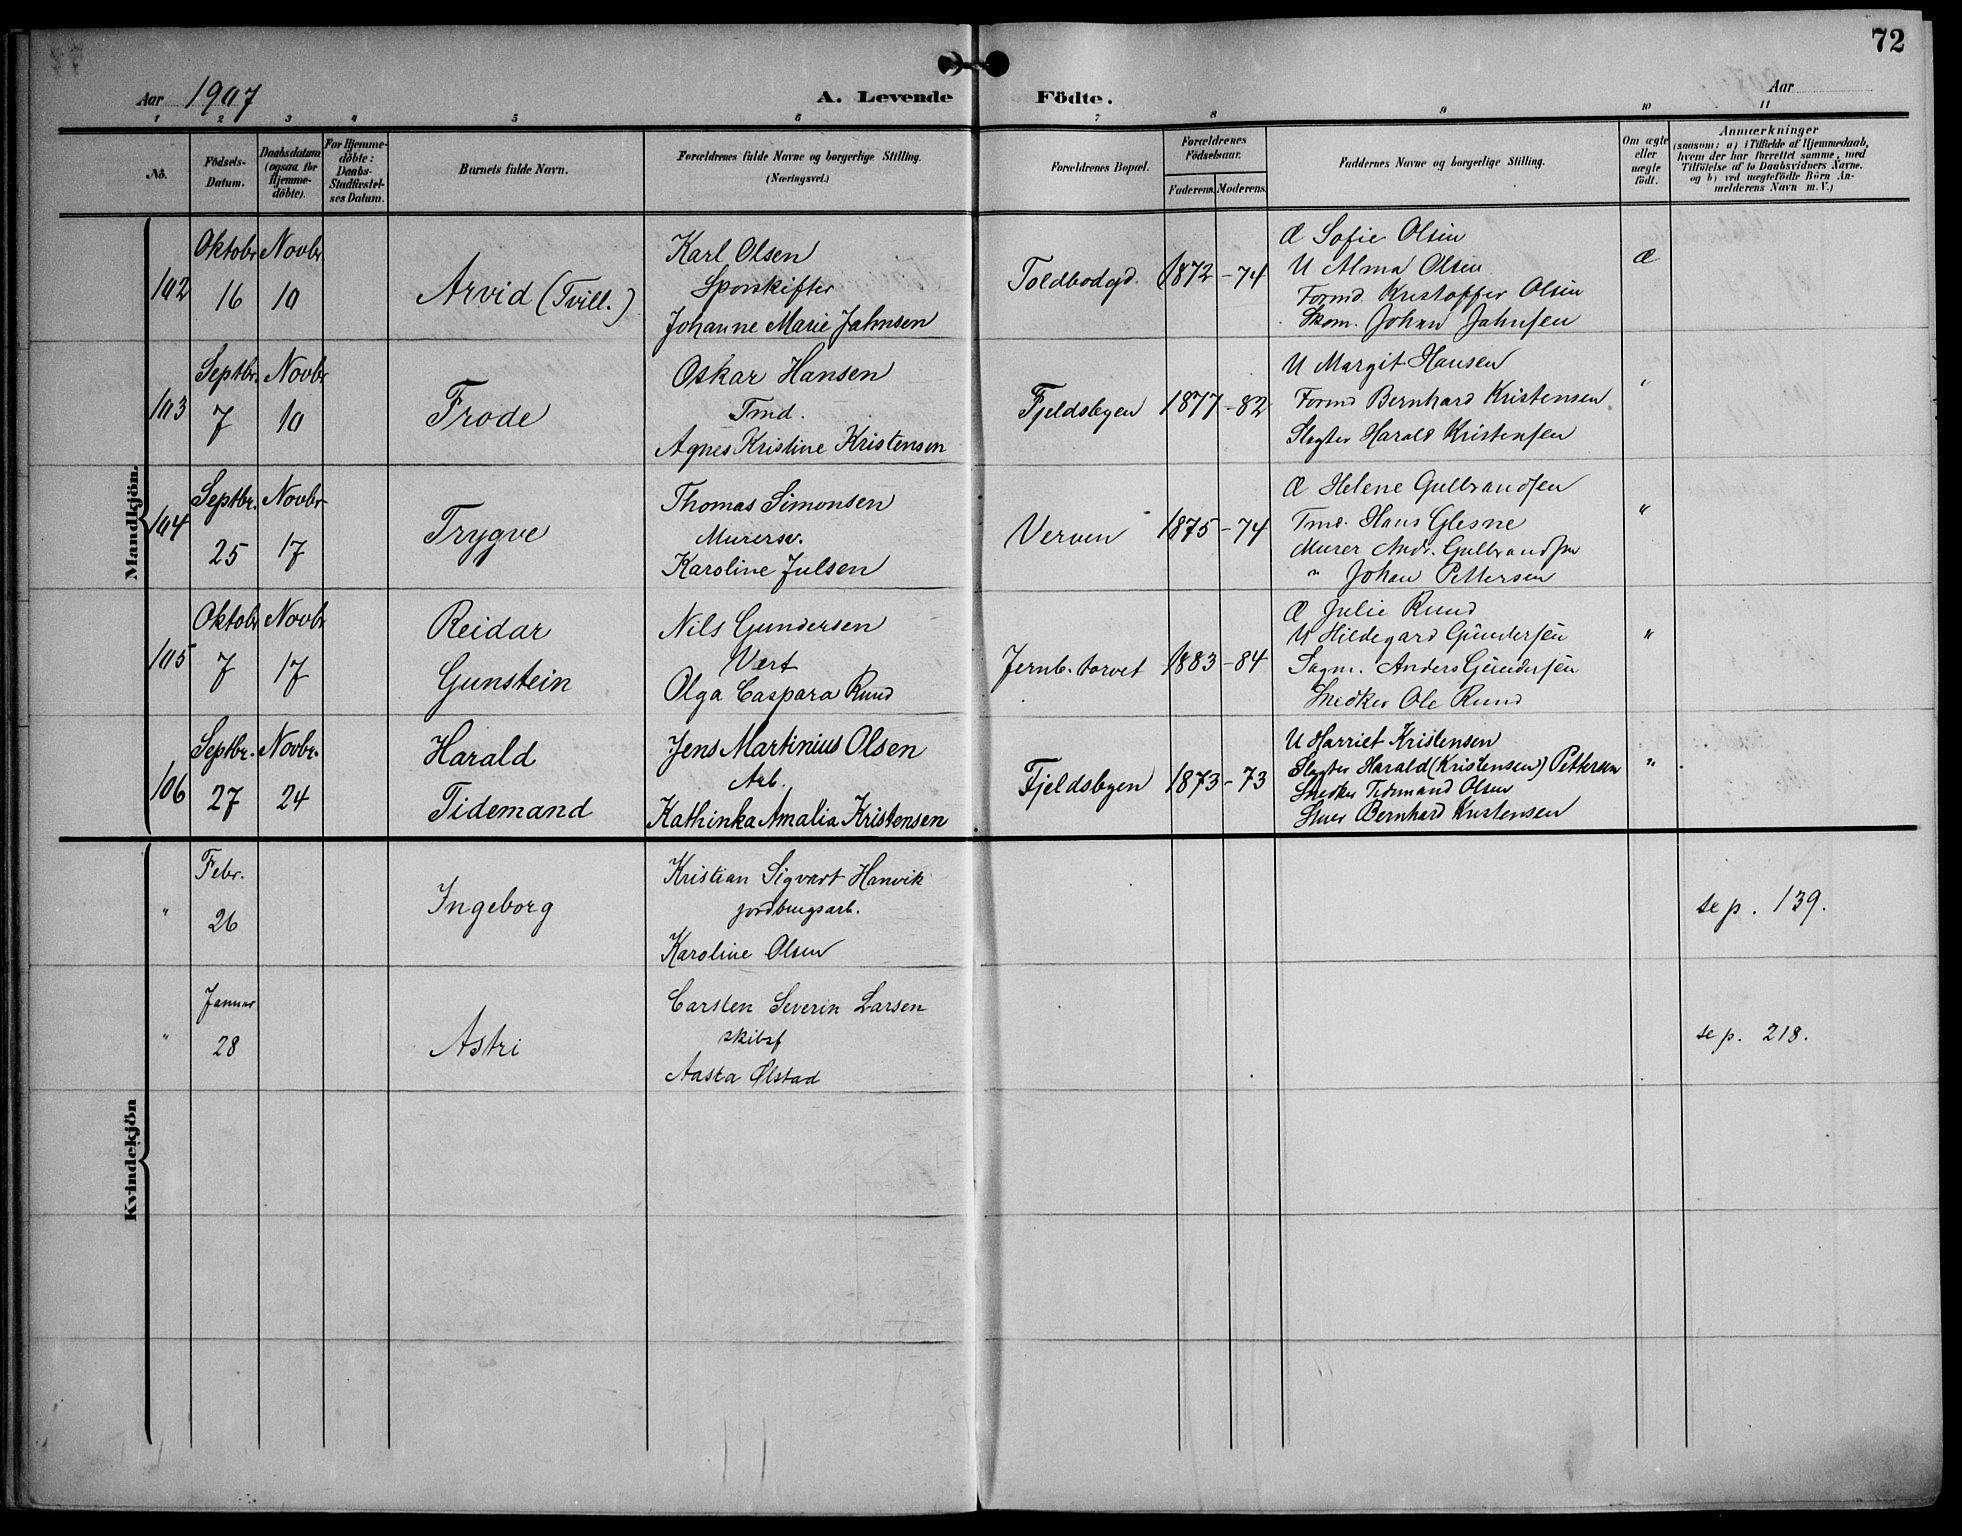 72
Aar 1907
A. Levende Födte.
Aar
1 2 3 4 5 6 7 8 9 10 11
No.
Födsels-Datum.
Daabsdatum (ogsaa for Hjemme-döbte).
For Hjemme-döbte: Daabs-Stadfæstel-ses Datum.
Barnets fulde Navn.
Forældrenes fulde Navne og borgerlige Stilling. (Næringsvei.)
Forældrenes Bopæl.
Forældrenes Födselsaar.
Faderens. Moderens.
Faddernes Navne og borgerlige Stilling.
Om ægte eller uægte födt.
Anmærkninger
(saasom: a) i Tilfælde af Hjemmedaab,
hvem der har forrettet samme, med
Tilföielse af to Daabsvidners Navne.
og b) ved uægtefödte Börn An-
melderens Navn m. V.)
Mandkjön.
102
Oktobr 16
Novbr 10
Arvid (Tvill.)
Karl Olsen
Sporskifter
Johanne Marie Jahnsen
Toldbodgd.
1872 - 74
Æ Sofie Olsen
U Alma Olsen
Formd. Kristoffer Olsen
Skom. Johan Jahnsen
Æ
103
Septbr. 7
Novbr 10
Frode
Oskar Hansen
Tmd.
Agnes Kristine Kristensen
Fjeldsbyen
1877 - 82
U Margit Hansen
Formd Bernhard Kristensen
Slagter Harald Kristensen
"
104
Septbr. 25
Novbr 17
Trygve
Thomas Simonsen
Murersv.
Karoline Julsen
Verven
1875 - 74
Æ Helene Gulbrandsen
Tmd. Hans Glesne
Murer Andr. Gulbrandsen
" Johan Pettersen
"
105
Oktobr 7
Novbr 17
Reidar
Gunstein
Nils Gundersen
Vært
Olga Caspara Ruud
Jernb. torvet
1883 - 84
Æ Julie Ruud
U Hildegard Gundersen
Sagm. Anders Gundersen
Snedker Ole Ruud
"
106
Septbr. 27
Novbr. 24
Harald
Tidemand
Jens Martinius Olsen
Arb.
Kathinka Amalia Kristensen
Fjeldsbyen
1873 - 73
U Harriet Kristensen
Slagter Harald (Kristensen) Pettersen
Snedker Tidemand Olsen
Stuer Bernhard Kristensen
"
Kvindekjön
"
Febr. 26
Ingeborg
Kristian Sigvart Hanvik
jordbrugsarb.
Karoline Olsen
se p. 139.
"
Januar 28
Astri
Carsten Severin Larsen
skibsf
Aasta Ølstad
se p. 218.